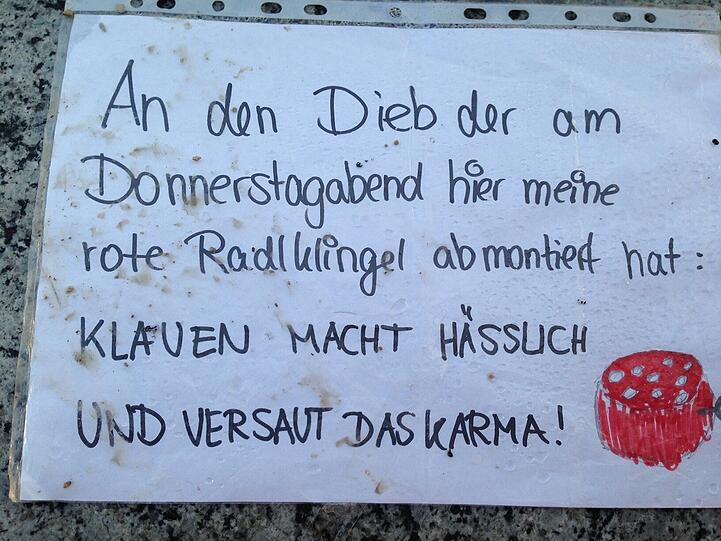 An den Dieb der am
Donnerstagabend hier meine
rote Radlklingel abmontiert hat:
KLAUEN MACHT HÄSSLICH
UND VERSAUT DAS KARMA!